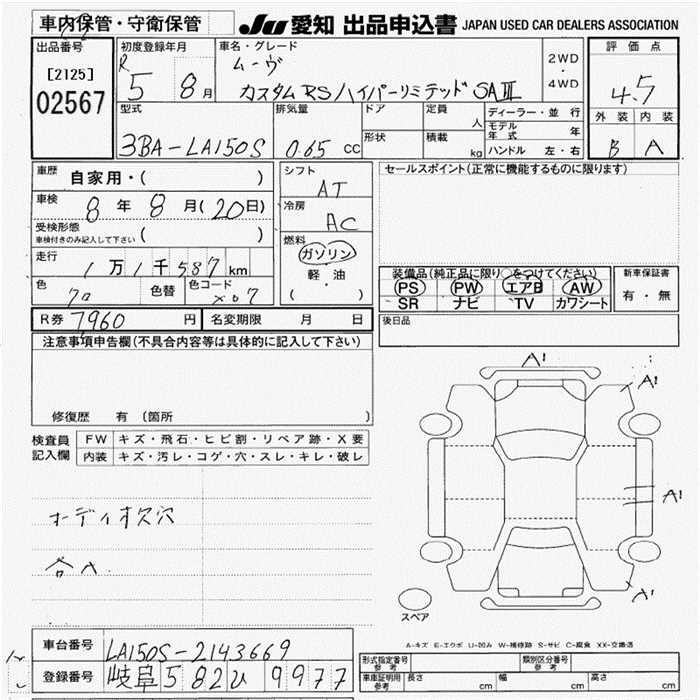 車内保管・守衛保管
JU 愛知 出品申込書 JAPAN USED CAR DEALERS ASSOCIATION
出品番号
[2125]
02567
初度登録年月
R 5 8月
車名・グレード
ムーヴ
カスタム RS ハイパーリミテッド SAⅢ
2WD
・
4WD
評価点
4.5
外装 内装
B A
型式
3BA-LA150S
排気量
0.65 CC
ドア
形状
定員
人
積載
kg
ディーラー・並行
モデル年式 年
ハンドル 左・右
車歴 自家用・( )
車検 8年 8月(20日)
受検形態
車検付きのみ記入して下さい ( )
走行
1万1千587km
色
色替
色コード
シフト
AT
冷房
AC
燃料
ガソリン
軽・油
( ・ )
セールスポイント(正常に機能するものに限ります)
装備品(純正品に限り○をつけてください)
PS PW エアB AW
SR ナビ TV カワシート
新車保証書
有・無
R券 7960円
名変期限 月 日
後日品
注意事項申告欄(不具合内容等は具体的に記入して下さい)
修復歴 有 〔箇所 〕
検査員
記入欄
FW キズ・飛石・ヒビ割・リペア跡・X要
内装 キズ・汚レ・コゲ・穴・スレ・キレ・破レ
オーディオ欠穴
A1
A1
A1
A1
スペア
A-キズ E-エクボ U-凹み W-補修跡 S-サビ C-腐食 XX-交換済
車台番号 LA150S-2143669
登録番号 岐阜582ひ9977
形式指定番号
参考
類別区分番号
参考
車庫証明用
参考
長さ cm
幅 cm
高さ cm